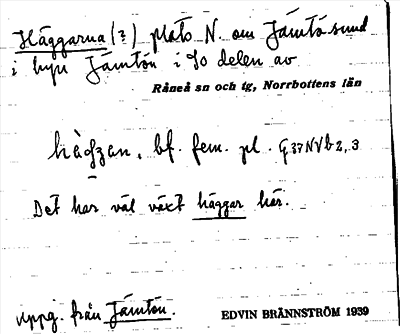 Häggarna (?) plats N. om Jämtösund
i byn Jämtön i So delen av
Råneå sn och tg, Norrbottens län
bf. fem. pl.
Det har väl växt häggar här.
uppg. från Jämtön.
EDVIN BRÄNNSTRÖM 1939